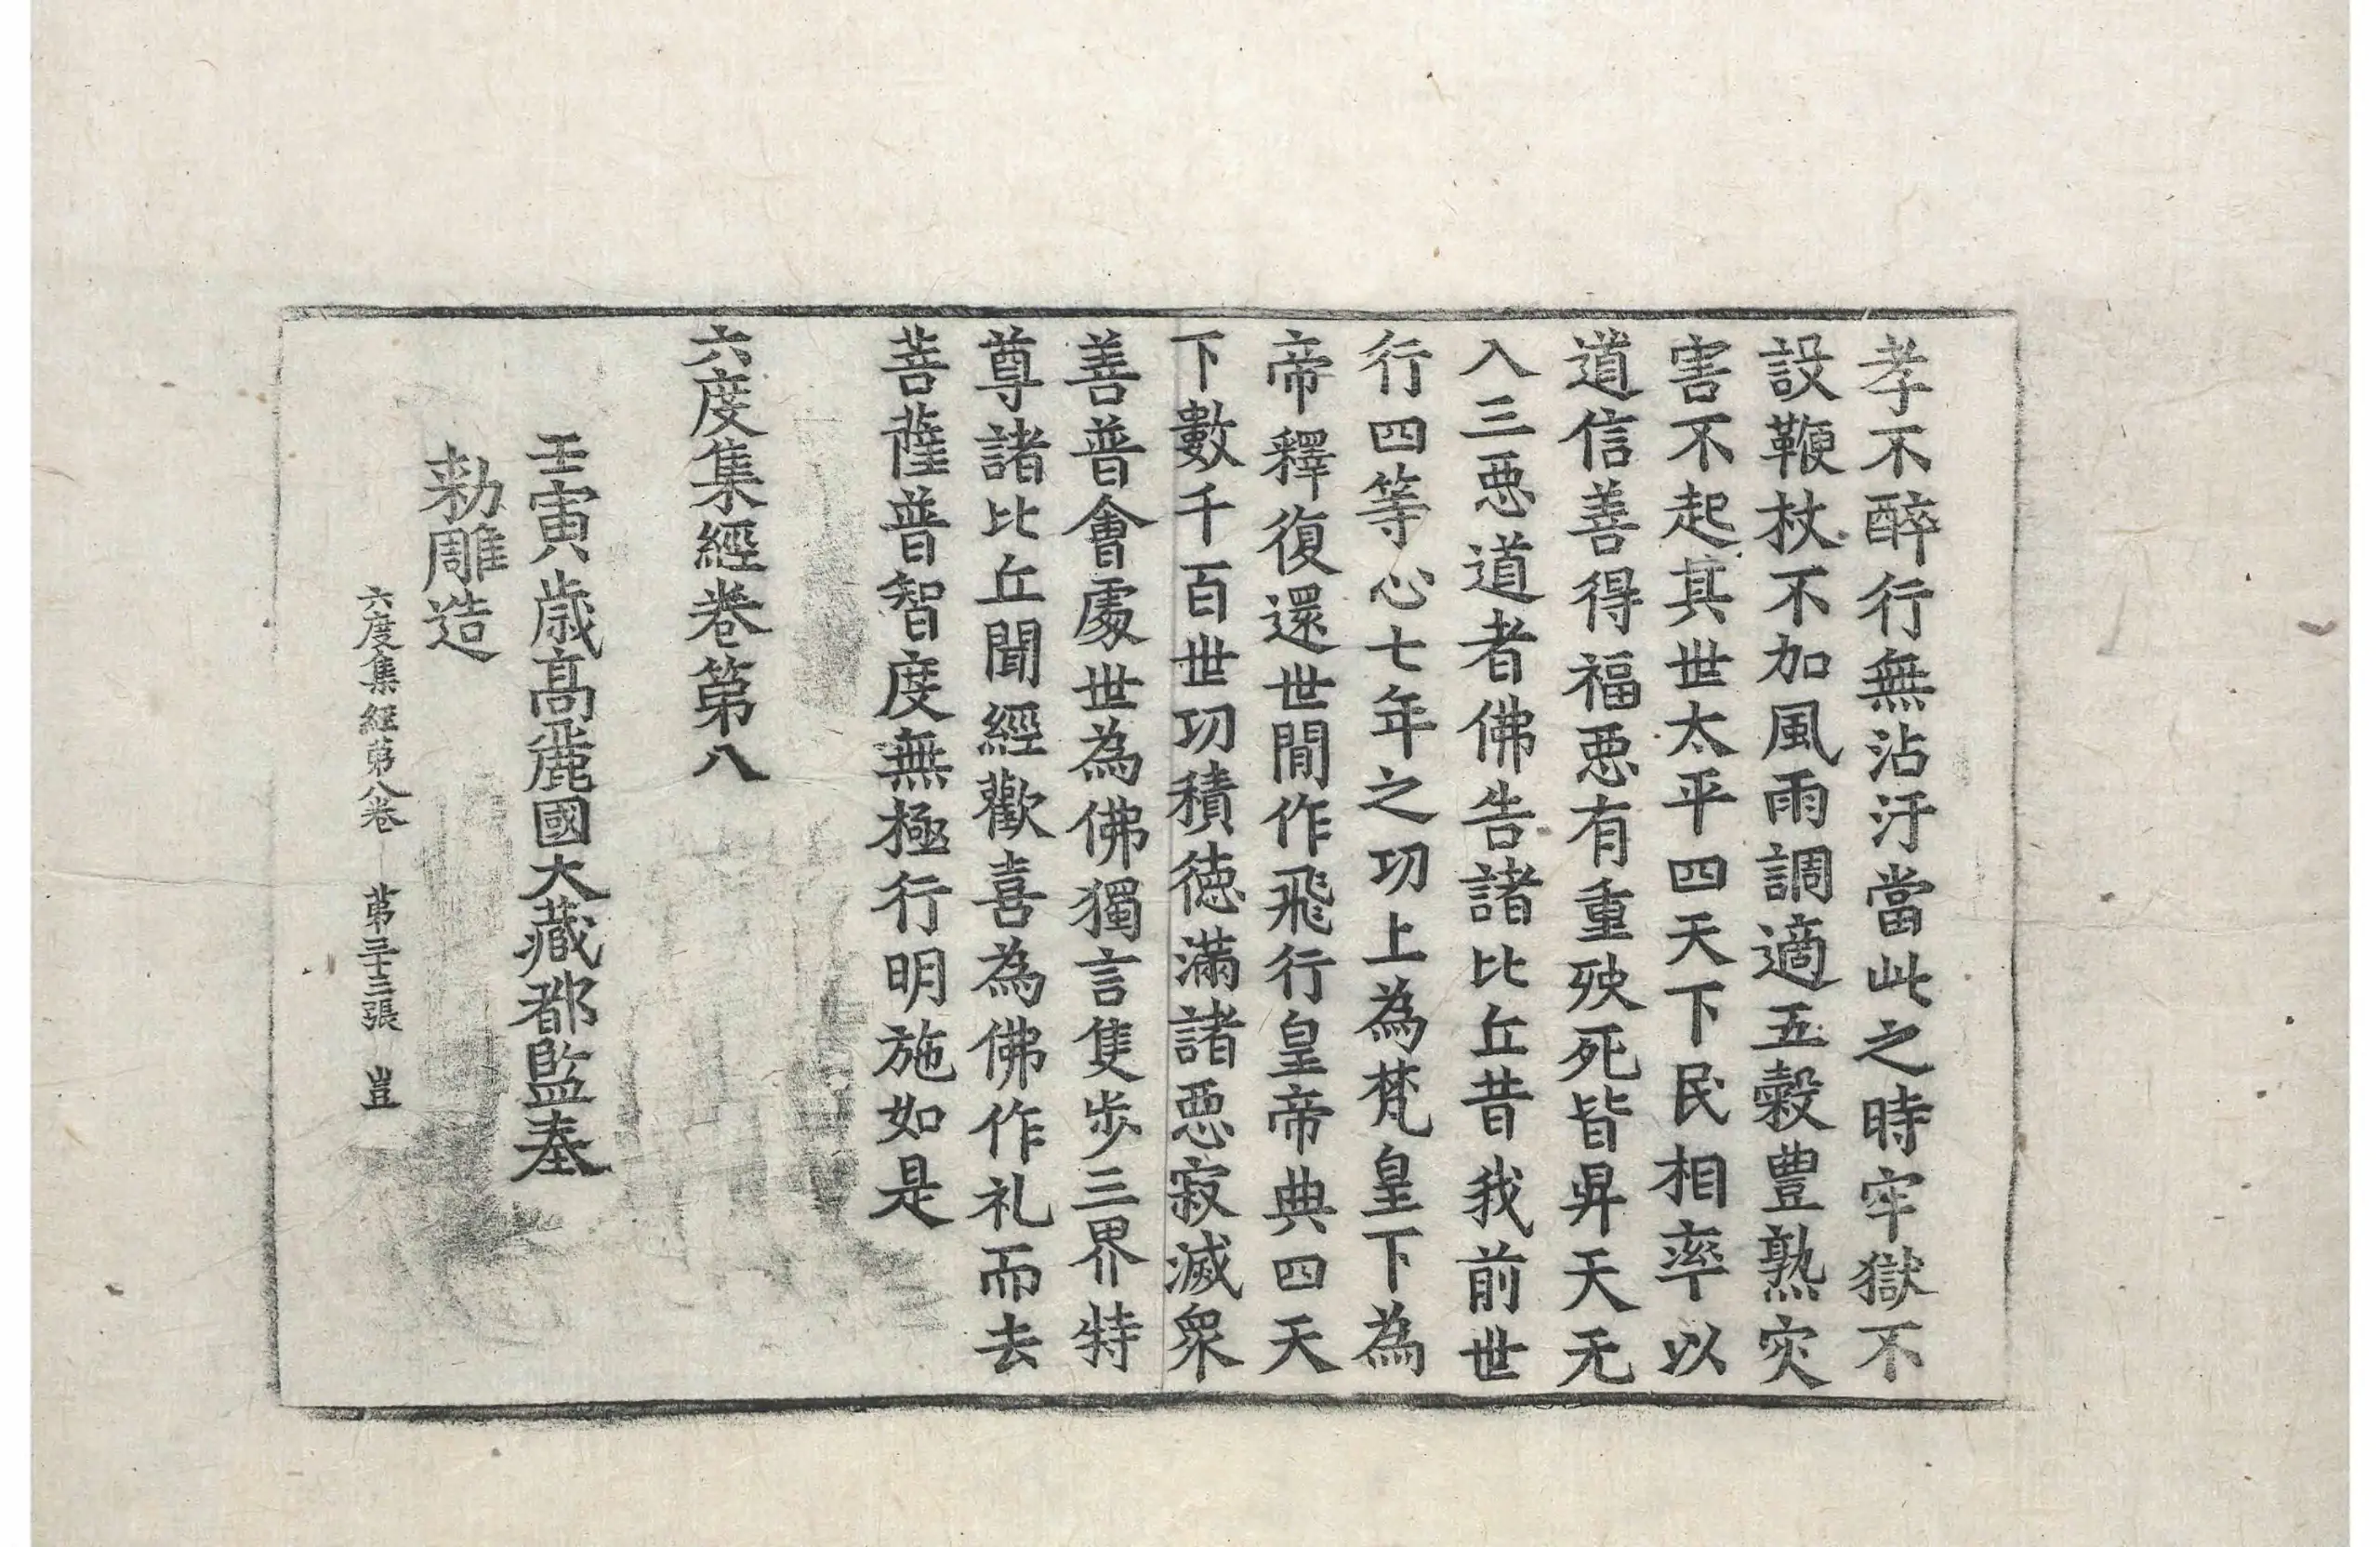 孝不醉行無沾汙當此之時牢獄不
設鞭杖不加風雨調適五穀豊熟灾
害不起其世太平四天下民相率以
道信善得福惡有重殃死皆昇天无
入三惡道者佛告諸比丘昔我前世
行四等心七年之功上為梵皇下為
帝釋復還世間作飛行皇帝典四天
下數千百世功積德滿諸惡寂滅衆
善普會處世為佛獨言隻步三界特
尊諸比丘聞經歡喜為佛作礼而去
菩薩普智度無極行明施如是
六度集經卷第八
壬寅歲高麗國大藏都監奉
勑雕造
六度集經第八卷 第三十三張 豈